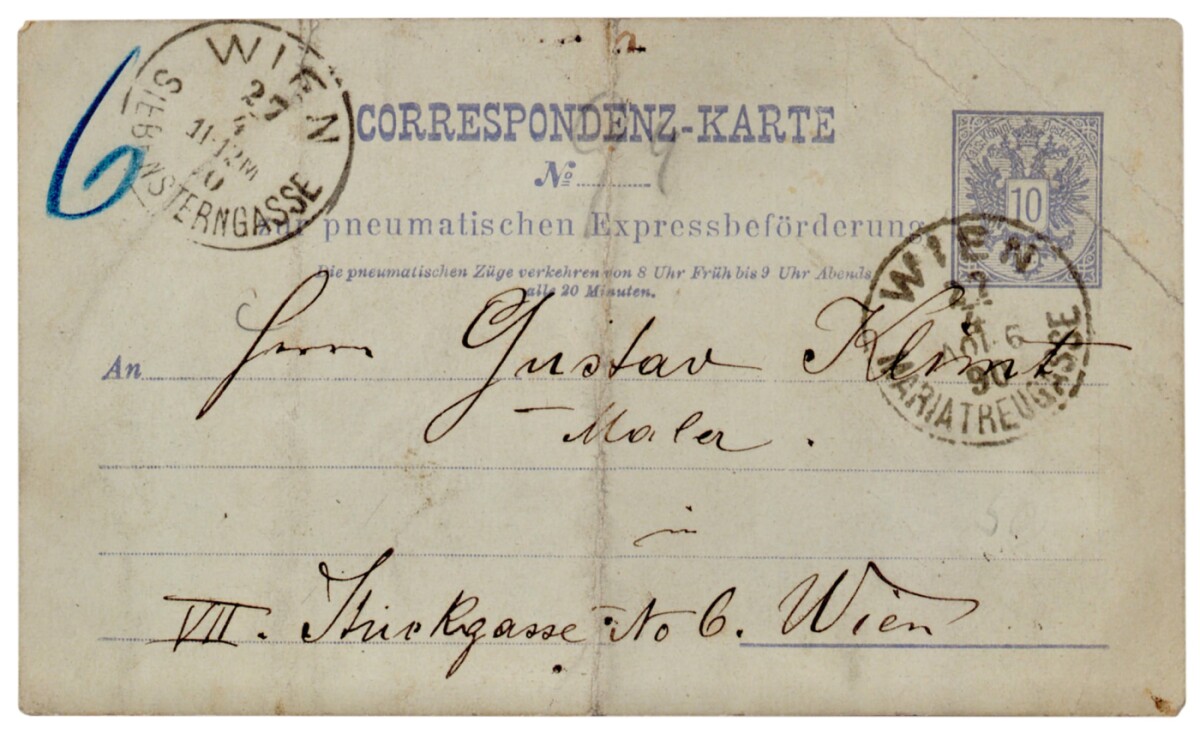 6
WIEN
27
4
11-12M
SIEBENSTERNGASSE
CORRESPONDENZ-KARTE
No
10
zur pneumatischen Expressbeförderung
Die pneumatischen Züge verkehren von 8 Uhr Früh bis 9 Uhr Abends
alle 20 Minuten.
WIEN
4
90
MARIATREUGASSE
An Herrn Gustav Klimt
Maler.
in
VII. Stuckgasse No 6. Wien